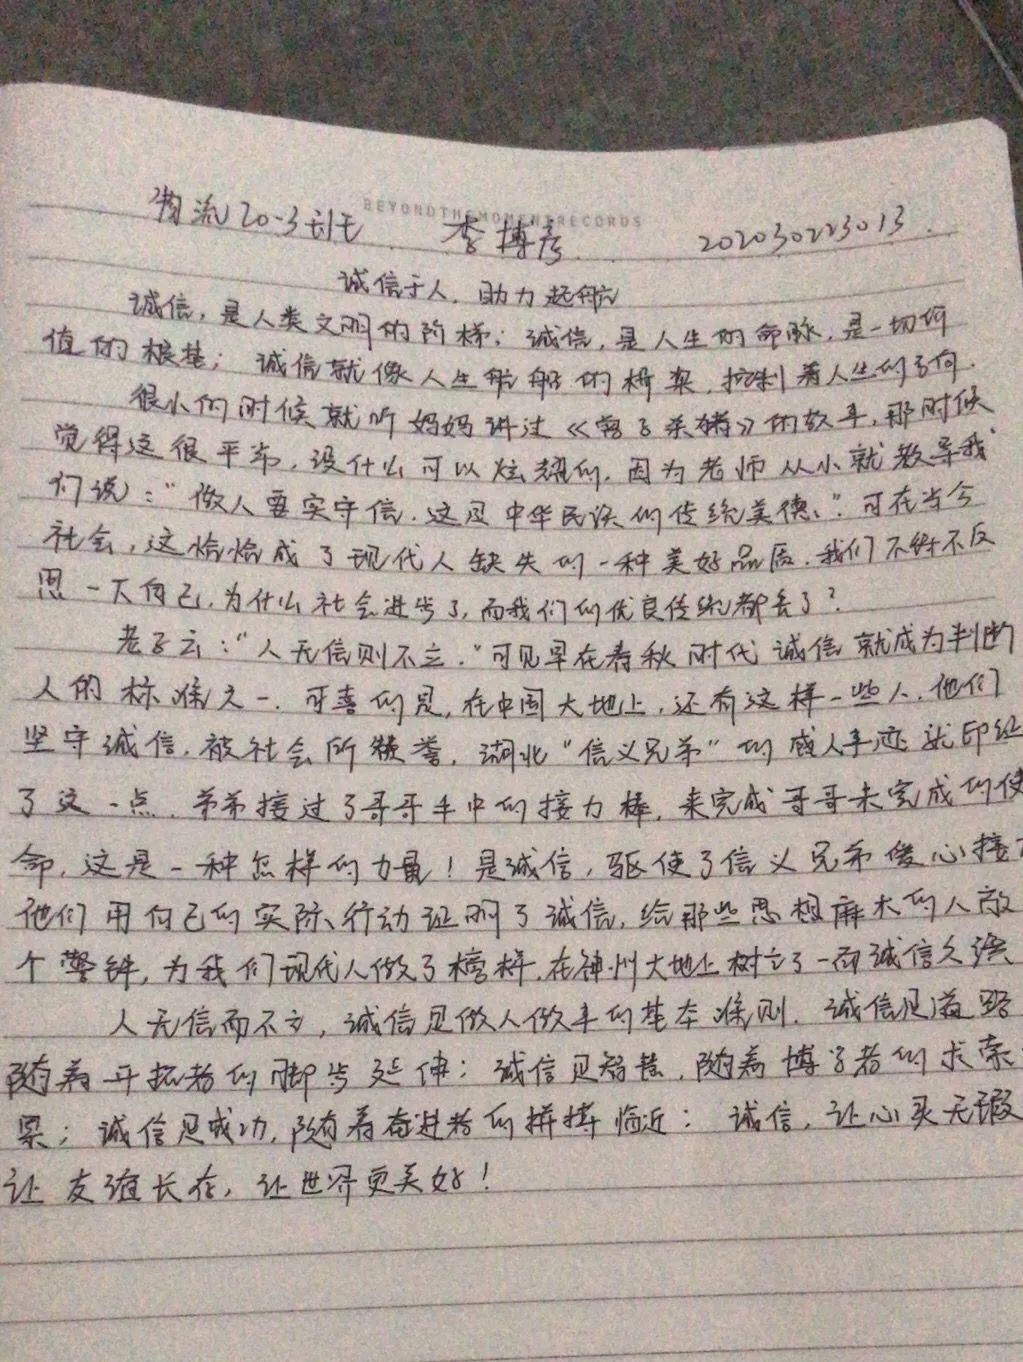 BEYONDTHEMOMENTRECORDS
物流20-3班 李博彦 202030223013.
诚信于人，助力起航
诚信，是人类文明的阶梯；诚信，是人生的命脉，是一切价
值的根基；诚信就像人生航船的桥梁，控制着人生的方向.
很小的时候就听妈妈讲过《曾子杀猪》的故事，那时候
觉得这很平常，没什么可以炫耀的，因为老师从小就教导我
们说：“做人要实守信，这是中华民族的传统美德、”可在当今
社会，这恰恰成了现代人缺失的一种美好品质，我们不得不反
思一下自己，为什么社会进步了，而我们的优良传统都丢了？
老子云：“人无信则不立.”可见早在春秋时代诚信就成为判断
人的标准之一.可喜的是，在中国大地上，还有这样一些人，他们
坚守诚信，被社会所赞誉，湖北“信义兄弟”的感人事迹就印证
了这一点.弟弟接过了哥哥手中的接力棒，来完成哥哥未完成的使
命，这是一种怎样的力量！是诚信，驱使了信义兄弟爱心接
他们用自己的实际行动证明了诚信，给那些思想麻木的人敲
个警钟，为我们现代人做了榜样，在神州大地上树立了一面诚信
人无信而不立，诚信是做人做事的基本准则.诚信是道路
随着开拓者的脚步延伸；诚信是智慧，随着博学者的求索
累；诚信是成功，随着奋进者的拼搏临近；诚信，让心灵无瑕
让友谊长存，让世界更美好！